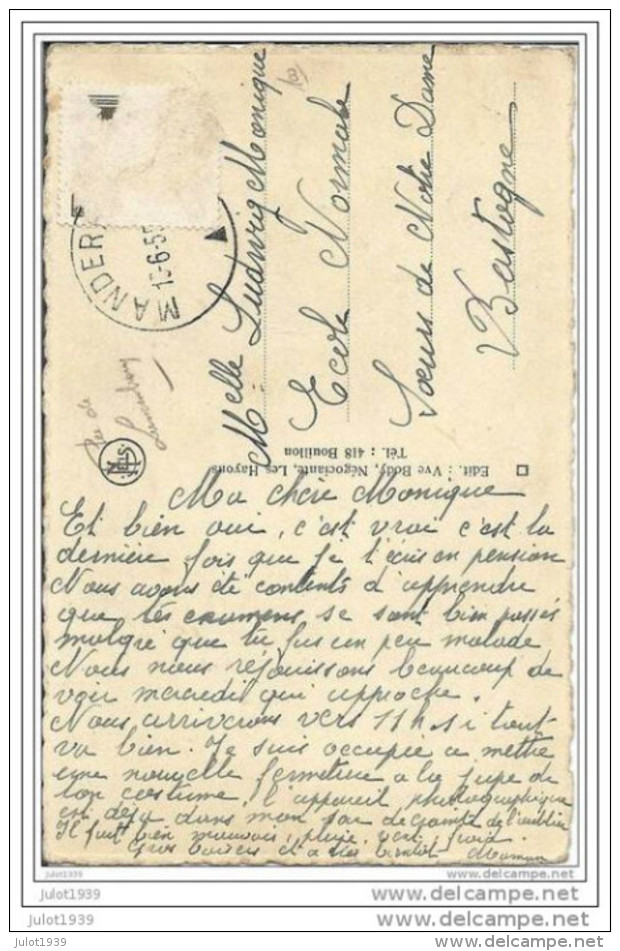 MANDER
16-6-5
Melle Ludwig Monique
Ecole Normale
Soeurs de Notre Dame
Bastogne
Rue de
NELS
Edit. : Vve Body, Négociante, Les Hayons
Tél. : 418 Bouillon
Ma chère Monique
Et bien oui, c'est vrai c'est la
dernière fois que je t'écris en pension
Nous avons été contents d'apprendre
que tes examens se sont bien passés
malgré que tu fus un peu malade
Nous nous réjouissons beaucoup de
voir mercredi qui approche.
Nous arriverons vers 11h si tout
va bien. Je suis occupée a mettre
une nouvelle fermeture a la jupe de
ton costume, l'appareil photographique
est déja dans mon sac de crainte de l'oublier
Il fait bien mauvais, pluie, vent, froid
Gros baisers et a très bientôt Maman
julot1939
www.delcampe.net
julot1939
www.delcampe.net
julot1939
www.delcampe.net
julot1939
www.delcampe.net